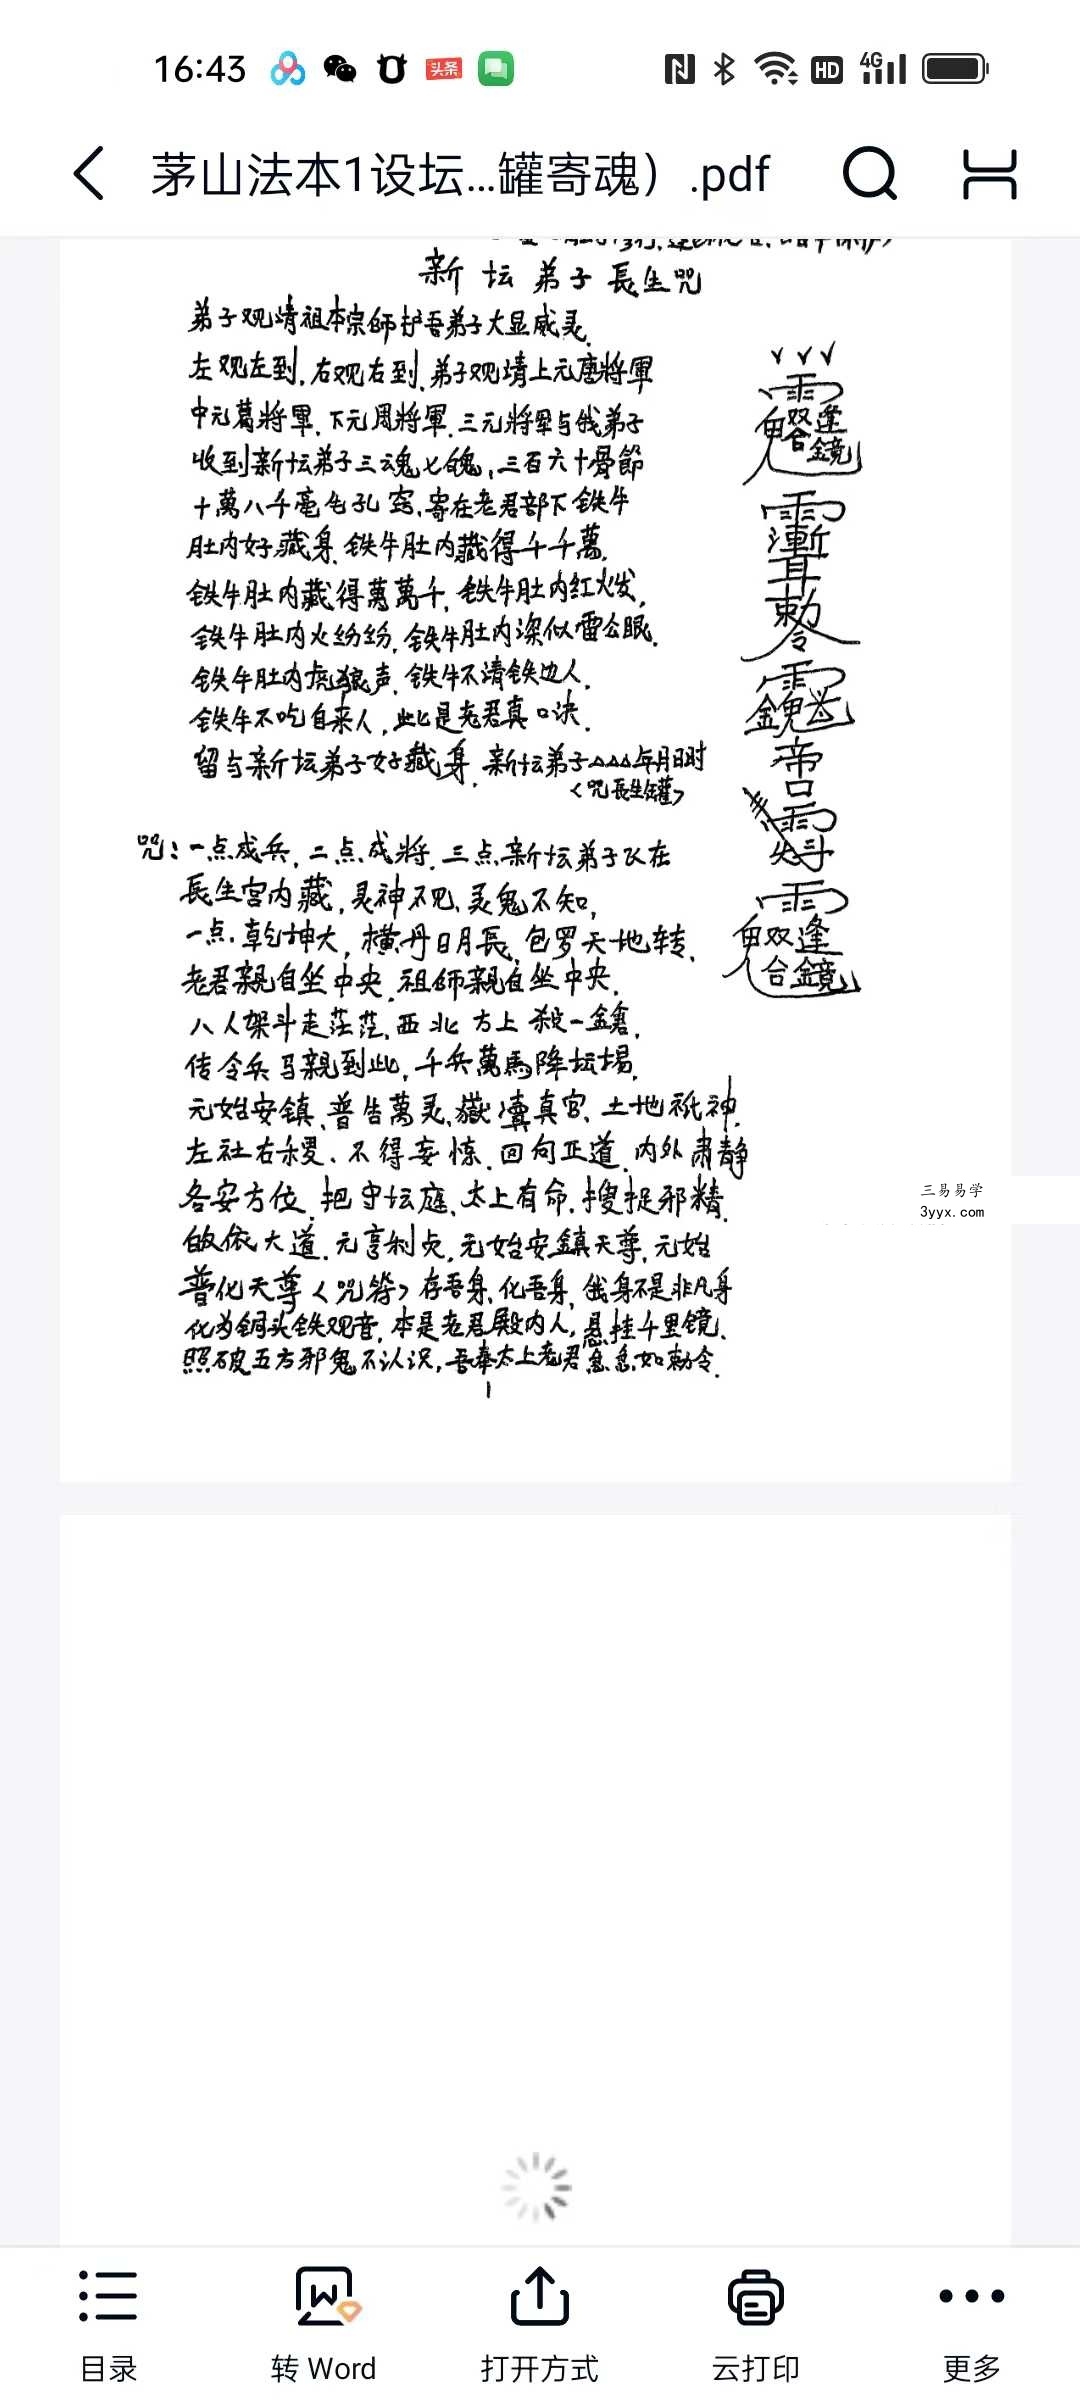 16:43
头条
HD
4G
茅山法本1设坛...罐寄魂）.pdf
新坛弟子長生咒
弟子观靖祖本宗師护吾弟子大显威灵.
左观左到.右观右到.弟子观靖上元唐將軍
中元葛將軍.下元周將軍.三元將軍与我弟子
收到新坛弟子三魂七魄,三百六十骨節
十萬八千毫毛孔窍,寄在老君部下铁牛
肚内好藏身.铁牛肚内藏得千千萬.
铁牛肚内藏得萬萬千,铁牛肚内红火发,
铁牛肚内火纷纷,铁牛肚内深似雷公眠.
铁牛肚内虎狼声.铁牛不请铁边人.
铁牛不吃自来人,此是老君真口决.
留与新坛弟子好藏身.新坛弟子△△△年月日时
<咒長生罐>
咒:一点成兵,二点成將.三点新坛弟子飞在
長生宫内藏,灵神不见、灵鬼不知,
一点.乾坤大,横丹日月長,包罗天地转.
老君親自坐中央.祖师親自坐中央.
八人架斗走茫茫,西北方上殺一鎗,
传令兵马親到此,千兵萬馬降坛場.
元始安镇、普告萬灵、嶽瀆真官、土地祇神
左社右稷、不得妄惊.回向正道.内外肃静
各安方位.把守坛庭、太上有命.搜捉邪精.
皈依大道.元亨利贞.元始安鎮天尊.元始
普化天尊<咒符>存吾身、化吾身,我身不是非凡身
化为铜头铁观音,本是老君殿内人,悬挂千里镜、
照破五方邪鬼不认识,吾奉太上老君急急如勅令.
1
雙合逢鏡
耳
勅令
帝
雙合逢鏡
三易易学
3yyx.com
目录
转 Word
打开方式
云打印
更多